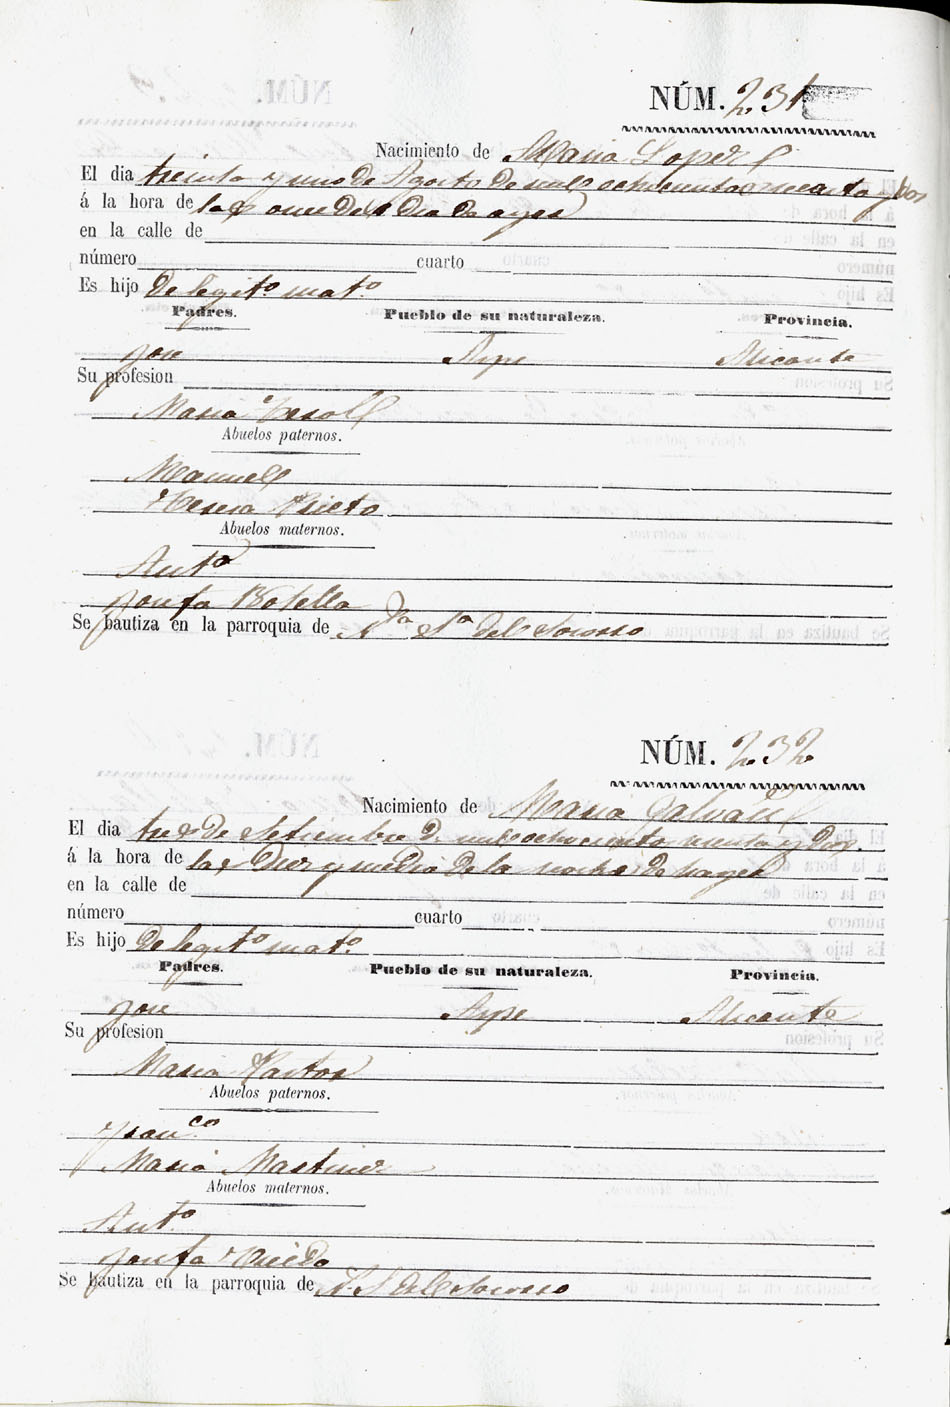 NÚM. 231
Nacimiento de Maria Lopez
El dia treinta y uno de Agosto de mil ochocientos sesenta y dos
á la hora de las once del dia de ayer
en la calle de
número cuarto
Es hijo de legit.º mat.º
Padres. Pueblo de su naturaleza. Provincia.
Jose Aspe Alicante
Su profesion
Maria Ceroll
Abuelos paternos.
Manuel
Teresa Prieto
Abuelos maternos.
Ant.º
Josefa Botella
Se bautiza en la parroquia de N.ª S.ª del Socorro
NÚM. 232
Nacimiento de Maria Galvañ
El dia tres de Setiembre d. mil ochociento sesenta y dos.
á la hora de las diez y media de la noche de hayer
en la calle de
número cuarto
Es hijo de legit.º mat.º
Padres. Pueblo de su naturaleza. Provincia.
Jose Aspe Alicante
Su profesion
Maria Pastor
Abuelos paternos.
Fran.co
Maria Martinez
Abuelos maternos.
Ant.º
Josefa
Se bautiza en la parroquia de N. S. del Socorro